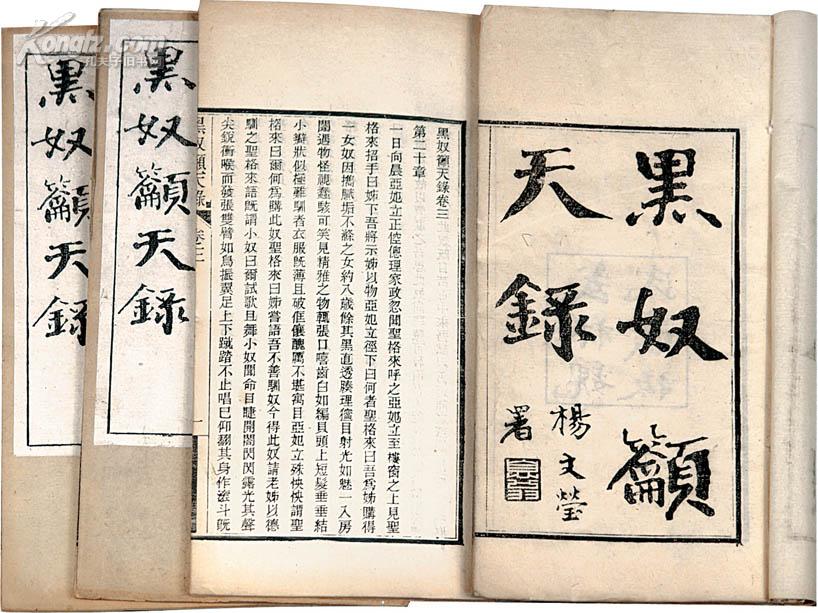 黑奴籲
天錄
楊文瑩
署
黑奴籲天錄卷三
第二十章
一日向晨亞妃立正悾偬理家政忽聞聖格來呼之亞妃立至樓窗之上見聖
格來招手曰姊下吾將示姊以物亞妃立徑下曰何者聖格來曰吾爲姊購得
一女奴因攜膩垢不滌之女約八歲餘其黑直透腠理獨目射光如魅一入房
闥遇物怪視蠢駭可笑見精雅之物輒張口嘻齒白如編貝頭上短髮垂垂結
小辮狀似極難馴者衣服旣薄且破傴僂醜厲不堪寓目亞妃立殊怏怏謂聖
格來曰爾何爲購此奴聖格來曰姊嘗語吾不善馴奴今得此奴請老姊以德
馴之聖格來語旣謂小奴曰爾試歌且舞小奴聞命目睫開闔閃閃露光其聲
尖銳衝喉而發張雙臂如鳥振翼足上下蹴踏不止唱已仰翻其身作滾斗旣
黑奴籲天錄 卷三 一
黑奴籲天錄
黑奴籲天錄
Kongfz.com
孔夫子旧书网